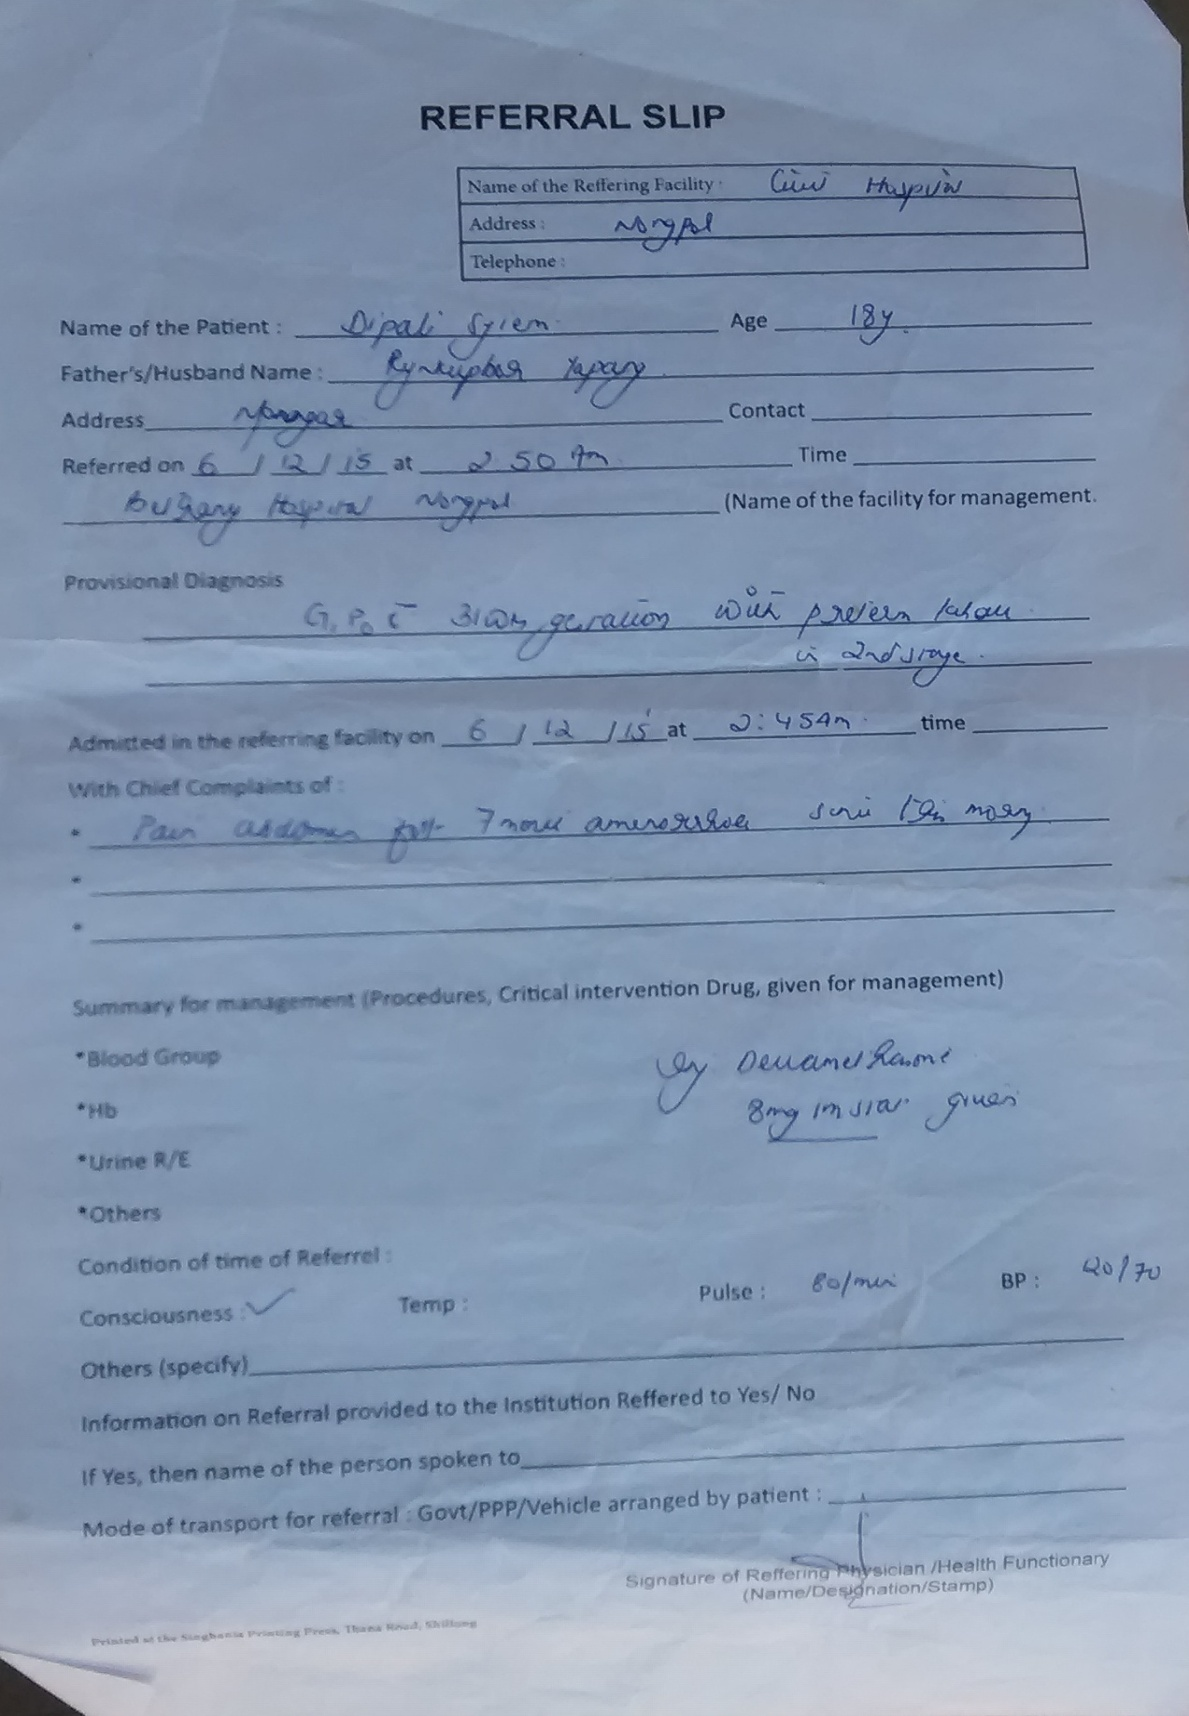 REFERRAL SLIP
Name of the Reffering Facility : Civil Hospital
Address : Nongpoh
Telephone :
Name of the Patient : Dipali Syiem Age 18y.
Father's/Husband Name :
Address Contact
Referred on 6 / 12 / 15 at 2 50 Am Time
Bethany Hospital Nongpoh (Name of the facility for management.
Provisional Diagnosis
G1P0 c̄ 31wks gestation with preterm labour
in 2nd stage.
Admitted in the referring facility on 6 / 12 / 15 at 2:45Am time
With Chief Complaints of :
* Pain abdomen 7 months amenorrhoea since this
*
*
Summary for management (Procedures, Critical intervention Drug, given for management)
*Blood Group
Inj Dexamethasone
*Hb
8mg im stat given
*Urine R/E
*Others
Condition of time of Referrel :
Consciousness : ✓ Temp : Pulse : 80/min BP : /70
Others (specify)
Information on Referral provided to the Institution Reffered to Yes/ No
If Yes, then name of the person spoken to
Mode of transport for referral : Govt/PPP/Vehicle arranged by patient :
Signature of Reffering Physician /Health Functionary
(Name/Designation/Stamp)
Printed at the Singhania Printing Press, Thana Road, Shillong